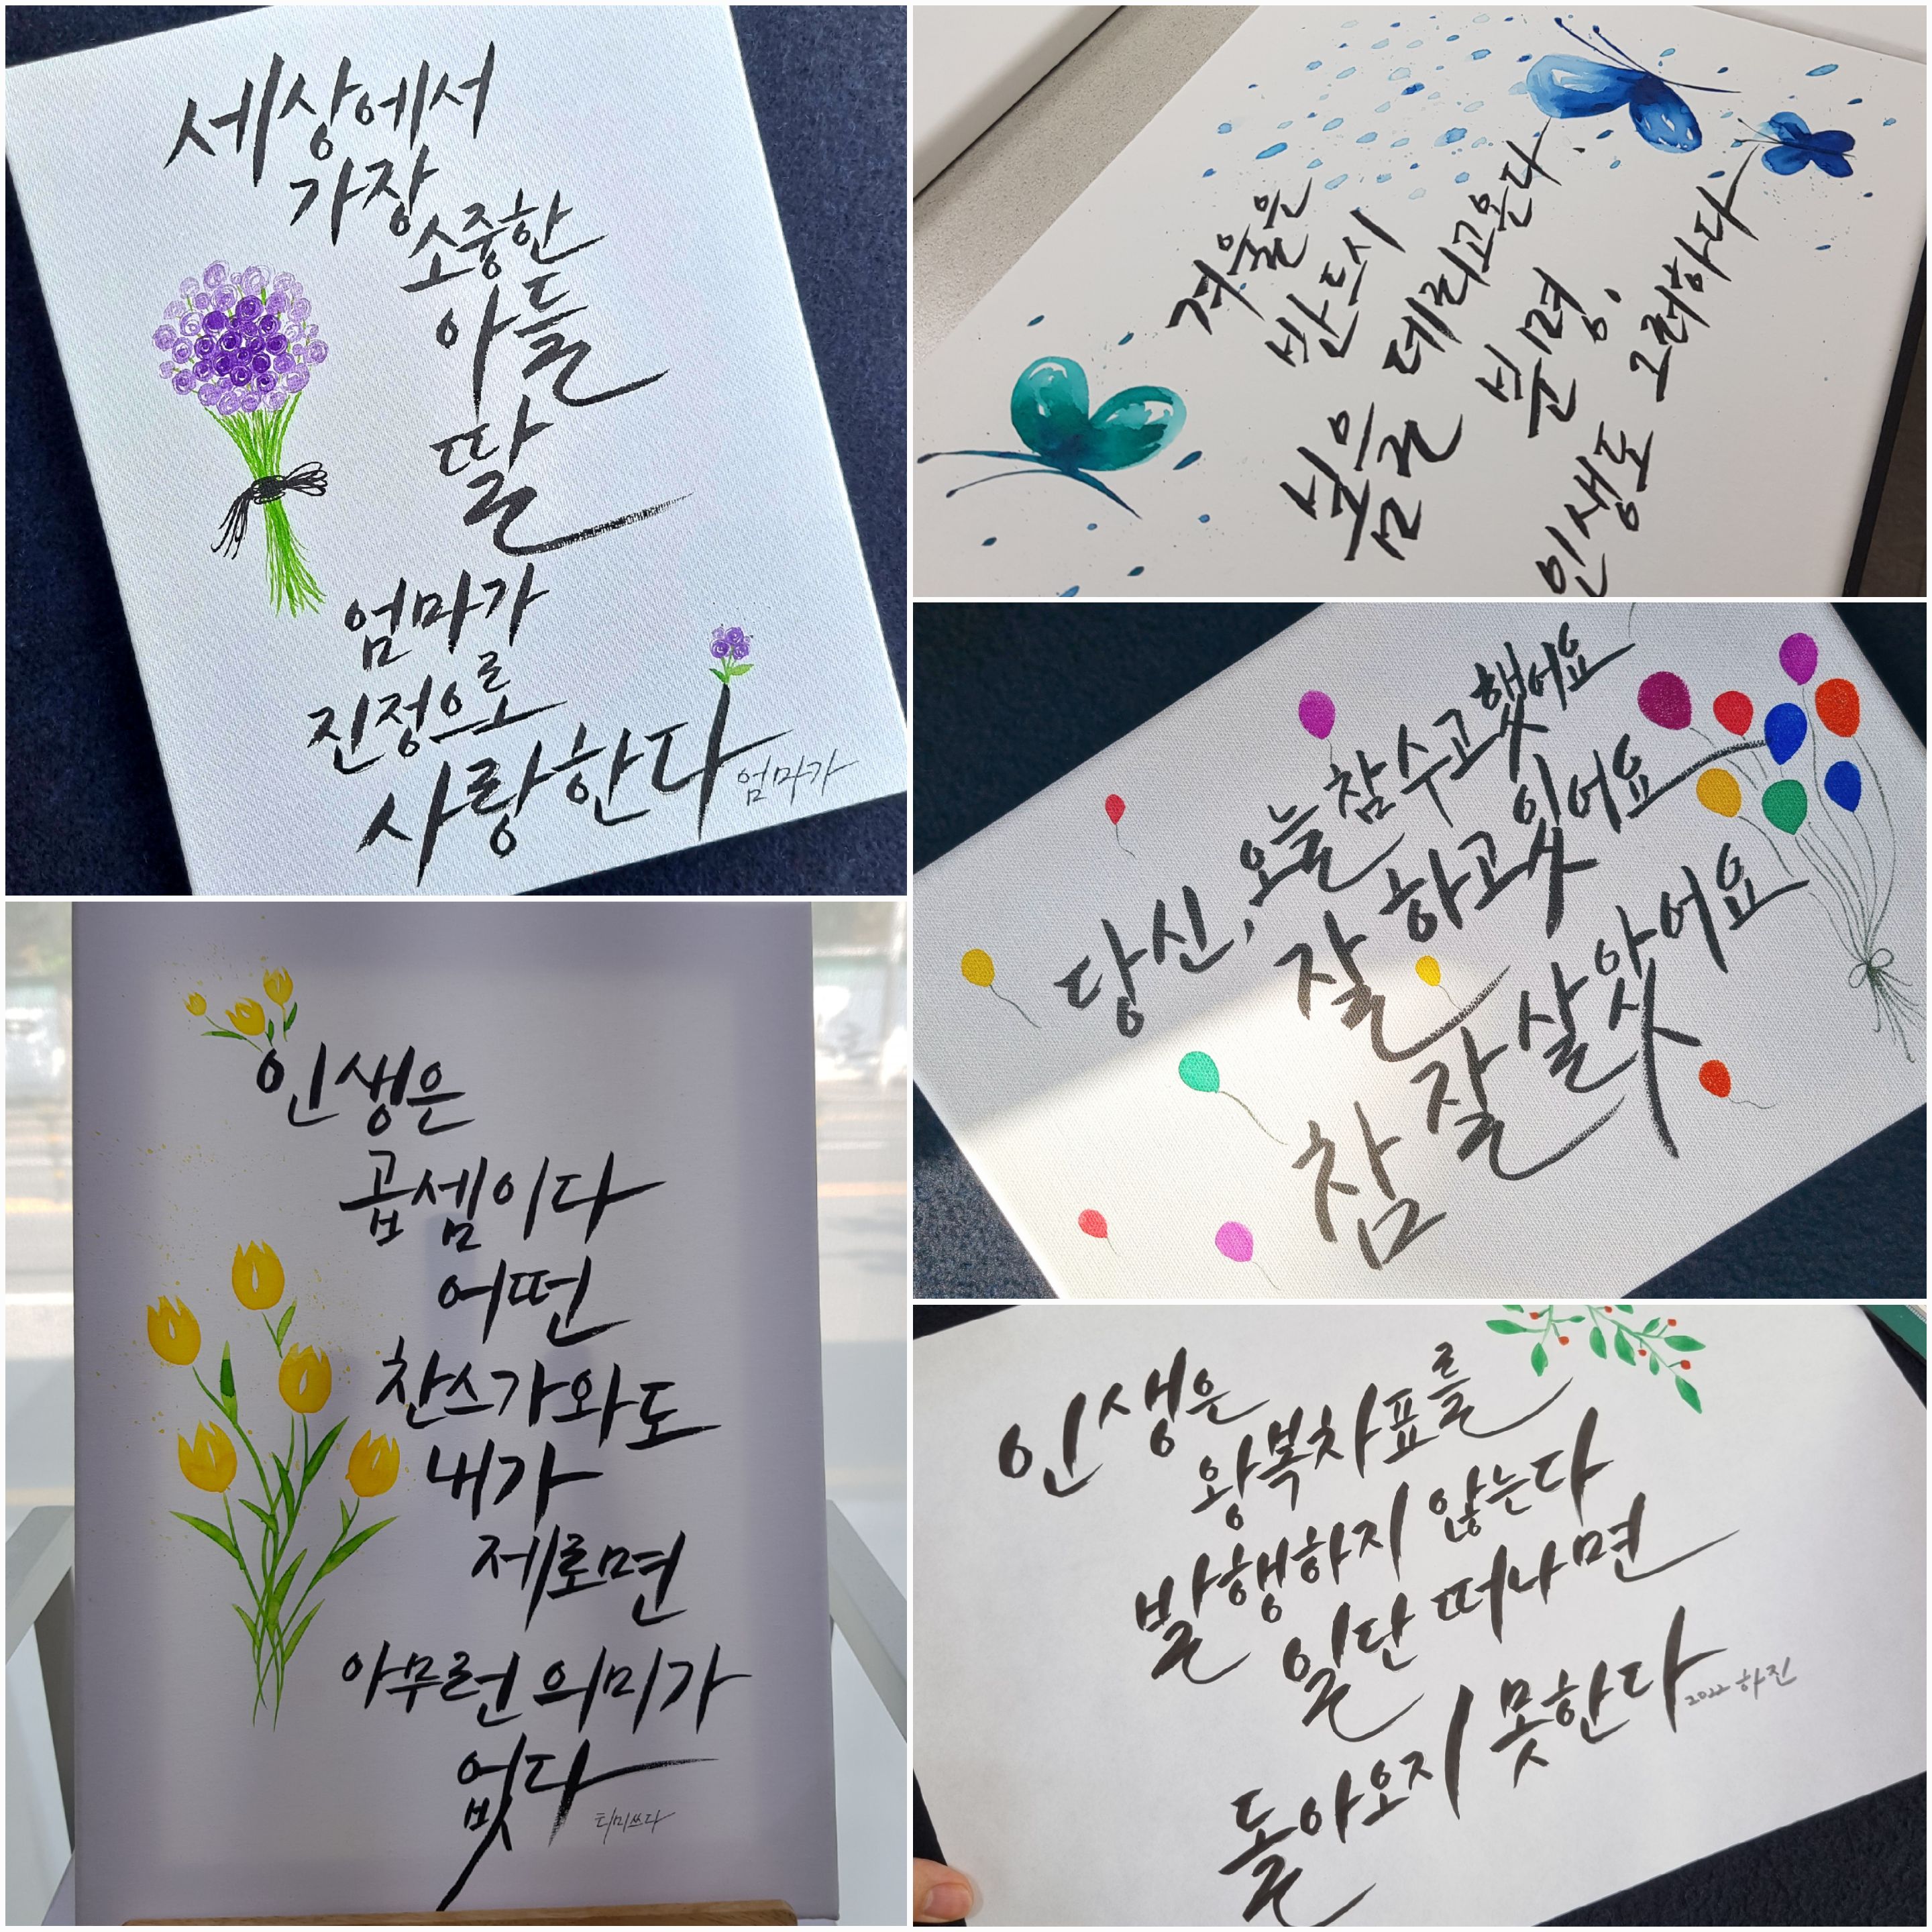 세상에서
가장
소중한
아들
딸
엄마가
진정으로
사랑한다
엄마가
겨울은
반드시
봄을 데리고 온다.
분명,
인생도 그러하다
당신, 오늘 참 수고했어요
잘 하고 있어요
참 잘 살았어요
인생은
곱셈이다
어떤
찬스가 와도
내가
제로면
아무런 의미가
없다
티미쓰다
인생은
왕복차표를
발행하지 않는다
일단 떠나면
돌아오지 못한다
2022 하진